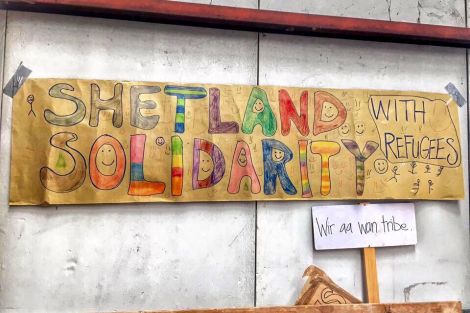 SHETLAND
SOLIDARITY
WITH
REFUGEES
Wir aa wan tribe.